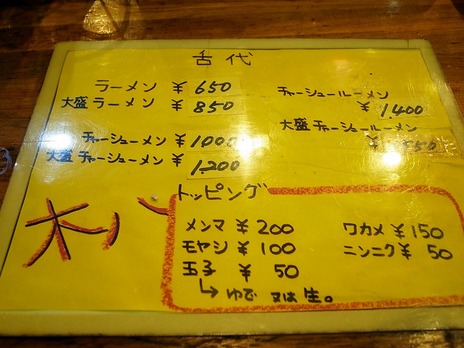 舌代
ラーメン ¥650
大盛ラーメン ¥850
チャーシューメン ¥1000
大盛チャーシューメン ¥1200
チャーシュールーメン
¥1400
大盛チャーシュールーメン
トッピング
メンマ ¥200
モヤシ ¥100
玉子 ¥50
↳ゆで 又は 生。
ワカメ ¥150
ニンニク ¥50